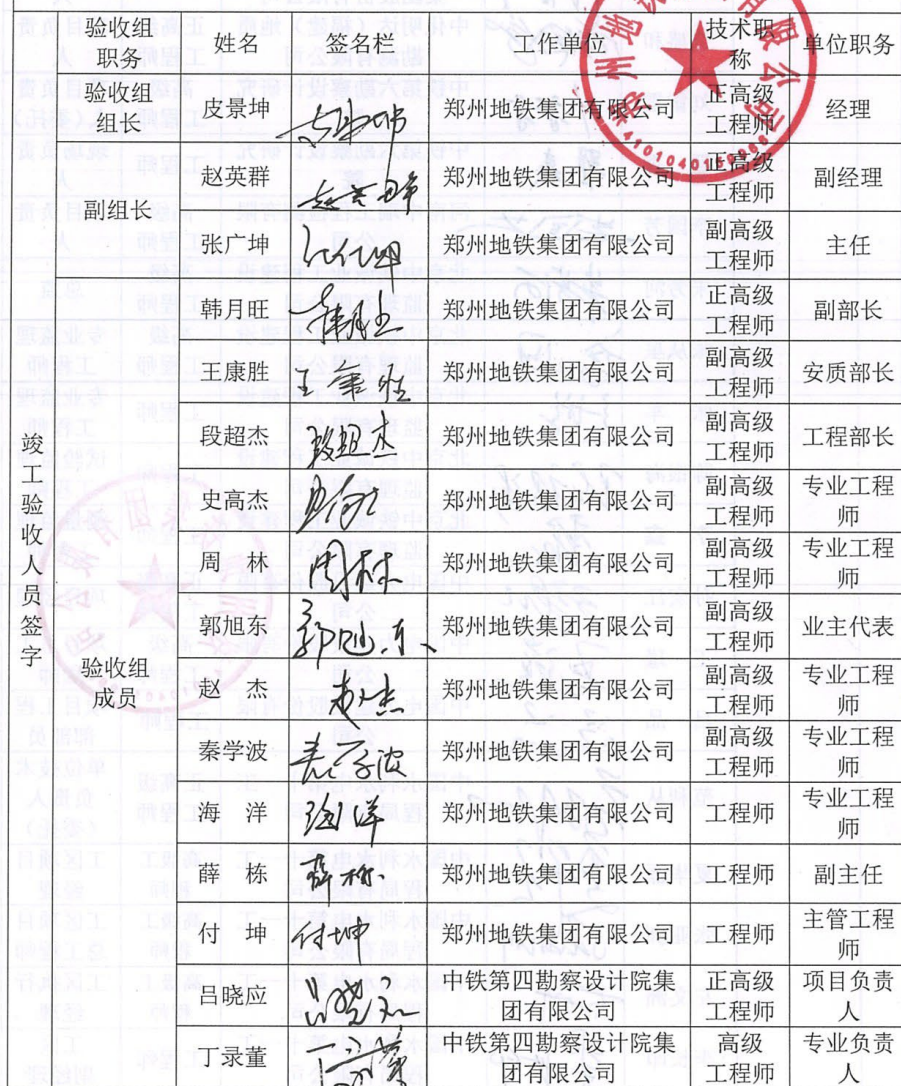 验收组
职务 姓名 签名栏 工作单位 技术职
称 单位职务
验收组
组长 皮景坤 郑州地铁集团有限公司 正高级
工程师 经理
副组长 赵英群 赵英群 郑州地铁集团有限公司 正高级
工程师 副经理
张广坤 郑州地铁集团有限公司 副高级
工程师 主任
竣工验收人员签字
验收组
成员
韩月旺 郑州地铁集团有限公司 正高级
工程师 副部长
王康胜 王康胜 郑州地铁集团有限公司 副高级
工程师 安质部长
段超杰 段超杰 郑州地铁集团有限公司 副高级
工程师 工程部长
史高杰 郑州地铁集团有限公司 副高级
工程师 专业工程
师
周 林 周林 郑州地铁集团有限公司 副高级
工程师 专业工程
师
郭旭东 郭旭东 郑州地铁集团有限公司 副高级
工程师 业主代表
赵 杰 赵杰 郑州地铁集团有限公司 副高级
工程师 专业工程
师
秦学波 秦学波 郑州地铁集团有限公司 副高级
工程师 专业工程
师
海 洋 海洋 郑州地铁集团有限公司 工程师 专业工程
师
薛 栋 薛栋 郑州地铁集团有限公司 工程师 副主任
付 坤 付坤 郑州地铁集团有限公司 工程师 主管工程
师
吕晓应 中铁第四勘察设计院集
团有限公司 正高级
工程师 项目负责
人
丁录董 中铁第四勘察设计院集
团有限公司 高级
工程师 专业负责
人